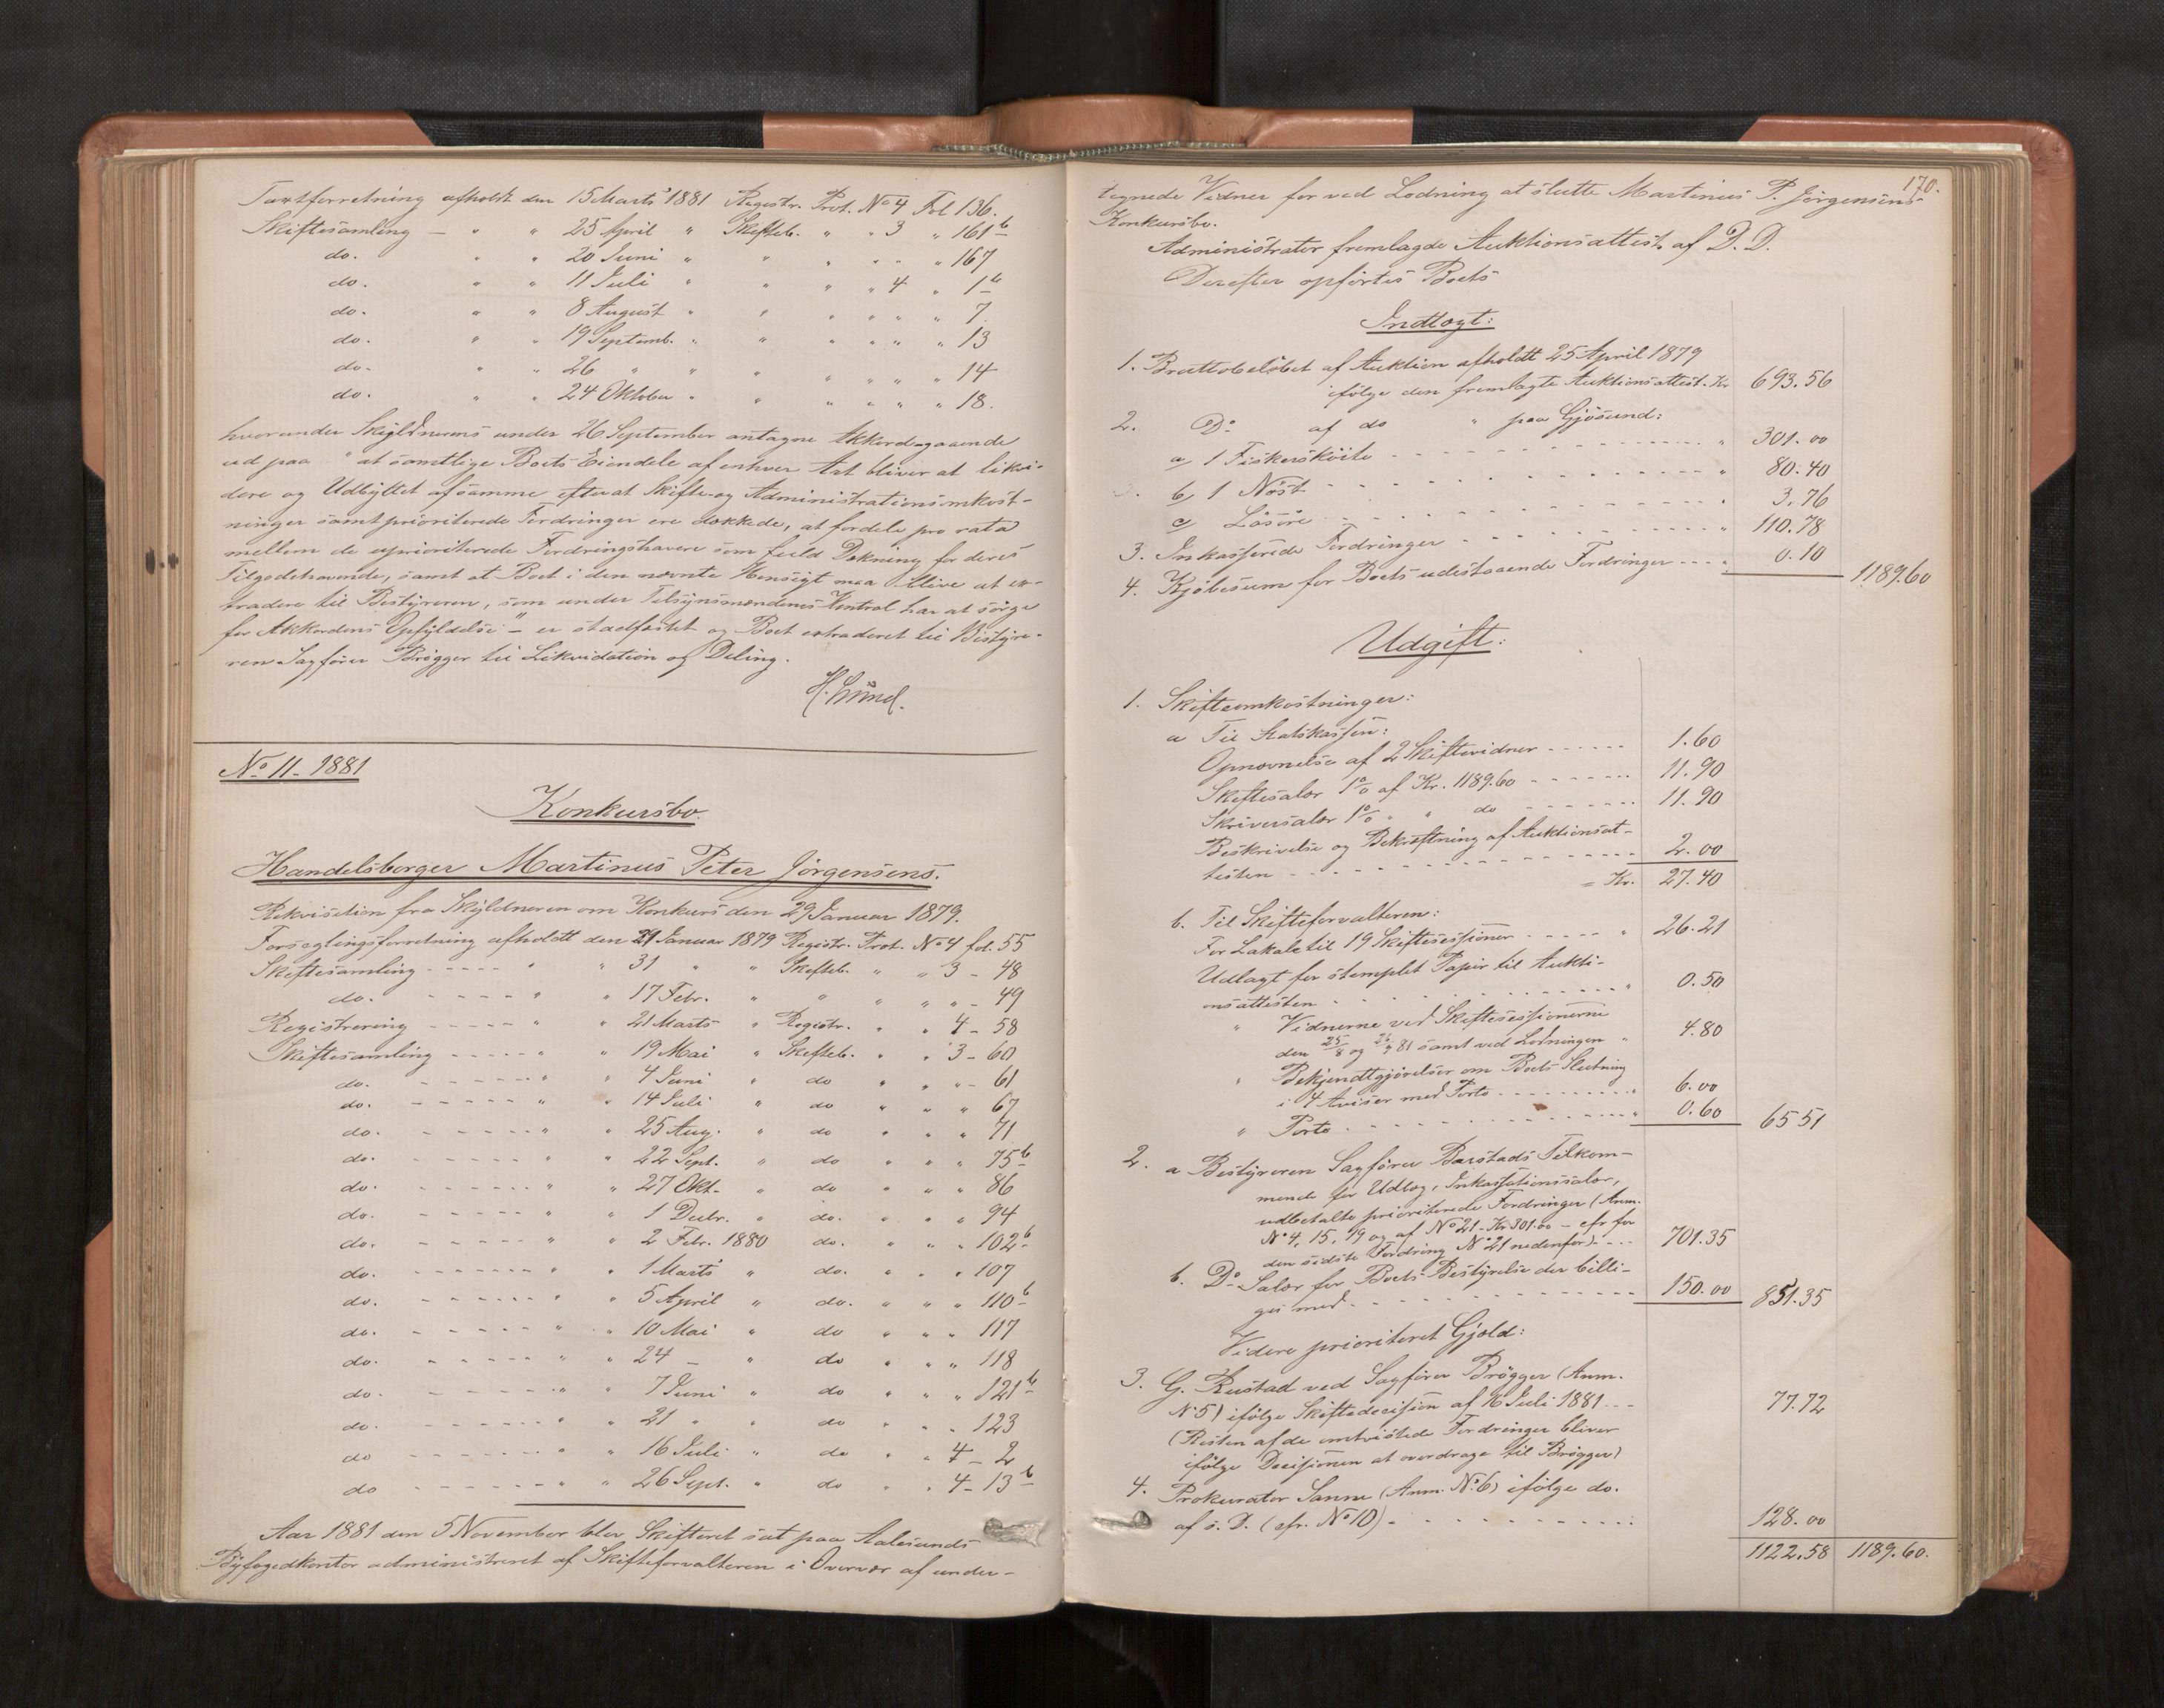 Taxtforretning afholdt den 15 Marts 1881 Registr. Prot. No 4 Fol 136.
Skiftesamling — " " 25 April " Skifteb. " " 3 " 161b
do. " " 20 Juni " " " " " " 167
do. " " 11 Juli " " " " 4 " 1b
do. " " 8 August " " " " " " 7
do. " " 19 Septemb. " " " " " " 13
do. " " 26 " " " " " " " 14
do. " " 24 Oktober " " " " " " 18.
hvorunder Skyldnerens under 26 September antagne Akkord gaaende
ud paa " at samtlige Boets Eiendele af enhver Art bliver at likvi-
dere og Udbyttet af samme, efterat Skifte- og Administrationsomkost-
ninger samt prioriterede Fordringer ere dækkede, at fordele pro rata
mellem de uprioriterede Fordringshavere som fuld Dækning for deres
Tilgodehavende, samt at Boet i den nævnte Hensigt maa blive at ex-
tradere til Bestyreren, som under Tilsynsmændenes Kontrol har at sørge
for Akkordens Opfyldelse" – er stadfæstet og Boet extraderet til Bestyre-
ren Sagfører Brøgger til Likvidation og Deling.
H. Lund.
No 11 - 1881
Konkursbo.
Handelsborger Martinus Peter Jörgensens.
Rekvisition fra Skyldneren om Konkurs den 29 Januar 1879.
Forseglingsforretning afholdt den 29 Januar 1879 Registr. Prot. No 4 fol. 55
Skiftesamling - - - - " " 31 " " Skifteb. " " 3 - 48
do. - - - - " " 17 Febr. " " " " " - 49
Registrering - - - - " " 21 Marts " Registr. " " 4 - 58
Skiftesamling - - - - " " 19 Mai " Skifteb. " " 3 - 60
do. - - - - " " 4 Juni " do " " " - 61
do. - - - - " " 14 Juli " do " " " 67
do. - - - - " " 25 Aug. " do " " " 71
do. - - - - " " 22 Sept. " do " " " 75b
do. - - - - " " 27 Okt. " do " " " 86
do. - - - - " " 1 Decbr. " do. " " " 94
do. - - - - " " 2 Febr. 1880 do. " " " 102b
do. - - - - " " 1 Marts " do. " " " 107
do. - - - - " " 5 April " do. " " " 110b
do. - - - - " " 10 Mai " do " " " 117
do. - - - - " " 24 – " do " " " 118
do. - - - - " " 7 Juni " do " " " 121b
do. - - - - " " 21 " " do " " " 123
do - - - - " " 16 Juli " do " " 4 - 2
do - - - - " " 26 Sept. " do " " 4 - 13b
Aar 1881 den 5 November blev Skifteret sat paa Aalesunds
Byfogedkontor administreret af Skifteforvalteren i Overvær af under-
170.
tegnede Vidner for ved Lodning at slutte Martinus P. Jörgensens
Konkursbo.
Administrator fremlagde Auktionsattest af D. D.
Derefter opförtes Boets
Indtægt:
1. Bruttobelöbet af Auktion afholdt 25 April 1879
ifölge den fremlagte Auktionsattest. Kr 693.56
2. Do af do " paa Gjösund:
a) 1 Fiskersköite - - - - " 301.00
b) 1 Nöst - - - - " 80.40
c) Lösöre - - - - " 3.76
3. Inkasserede Fordringer - - - - " 110.78
4. Kjöbesum for Boets udestaaende Fordringer - - - " 0.10 1189.60
Udgift:
1. Skifteomkostninger:
a Til Statskassen:
Opnævnelse af 2 Skiftevidner - - - - 1.60
Skiftesalær 1% af Kr. 1189.60 - - - - 11.90
Skriversalær 1% " " do - - - - 11.90
Beskrivelse og Bekræftning af Auktionsat-
testen - - - - 2.00
= Kr. 27.40
b. Til Skifteforvalteren:
For Lokale til 19 Skiftesessioner - - - - " 26.21
Udlagt for stemplet Papir til Aukti-
onsattesten - - - - " 0.50
" Vidnerne ved Skiftesessionerne
den 25/8 og 26/9 81 samt ved Lodningen " 4.80
" Bekjendtgjörelser om Boets Slutning
i 4 Aviser med Porto - - - - " 6.00
" Porto - - - - " 0.60 65 51
2. a Bestyreren Sagförer Barstads Tilkom-
mende for Udlæg, Inkassationssalær,
udbetalte prioriterede Fordringer (Anm.
No 4, 15, 19 og af No 21 - Kr 301.00 – cfr for
den sidste Fordring No 21 nedenfor) - - - 701.35
b. Do Salær for Boets Bestyrelse der billi-
ges med - - - - 150.00 851.35
Videre prioriteret Gjæld:
3. G. Rustad ved Sagförer Brögger (Anm.
No 5) ifölge Skiftedecision af 16 Juli 1881 - - - 77.72
(Resten af de omtvistede Fordringer bliver
ifölge Decisionen at overdrage til Brögger)
4. Prokurator Sanne (Anm. No 6) ifölge do.
af s. D. (cfr. No 10) - - - - 128.00
1122.58 1189.60.